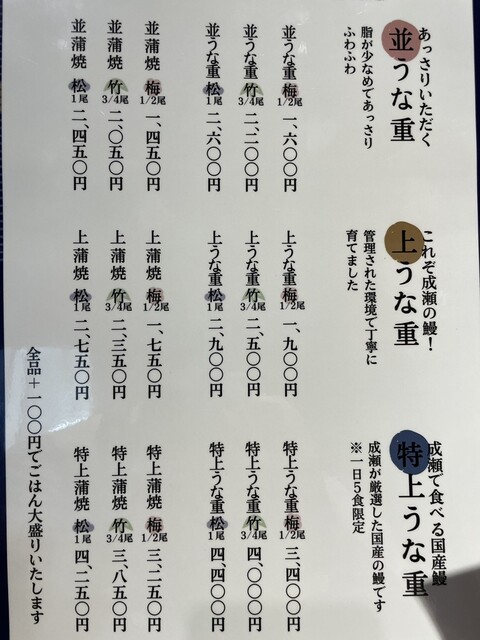 あっさりいただく
並うな重
脂が少なめてあっさり
ふわふわ
並うな重 梅 1/2尾 一、六〇〇円
並うな重 竹 3/4尾 二、二〇〇円
並うな重 松 1尾 二、六〇〇円
並蒲焼 梅 1/2尾 一、四五〇円
並蒲焼 竹 3/4尾 二、〇五〇円
並蒲焼 松 1尾 二、四五〇円
これぞ成瀬の鰻！
上うな重
管理された環境で丁寧に
育てました
上うな重 梅 1/2尾 一、九〇〇円
上うな重 竹 3/4尾 二、五〇〇円
上うな重 松 1尾 二、九〇〇円
上蒲焼 梅 1/2尾 一、七五〇円
上蒲焼 竹 3/4尾 二、三五〇円
上蒲焼 松 1尾 二、七五〇円
成瀬で食べる国産鰻
特上うな重
成瀬が厳選した国産の鰻です
※一日5食限定
特上うな重 梅 1/2尾 三、四〇〇円
特上うな重 竹 3/4尾 四、〇〇〇円
特上うな重 松 1尾 四、四〇〇円
特上蒲焼 梅 1/2尾 三、二五〇円
特上蒲焼 竹 3/4尾 三、八五〇円
特上蒲焼 松 1尾 四、二五〇円
全品＋一〇〇円でごはん大盛りいたします